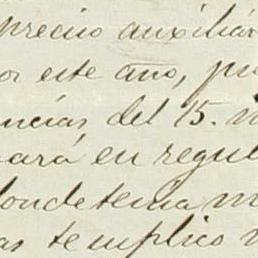 preciso auxiliar
or este año, pu
ncias del 15. n
ará en regul
donde tenia m
as te mplico